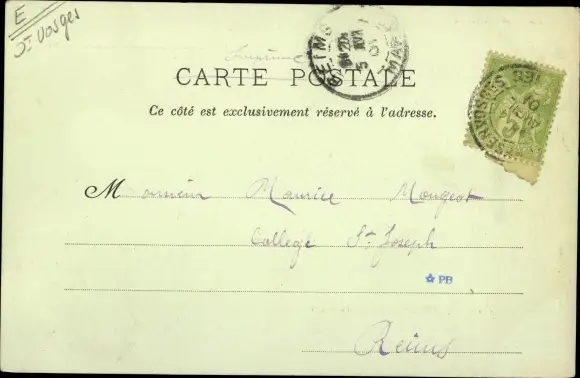 E
St Vosges
REIMS
5 AVRIL 01
MARNE
CARTE POSTALE
Ce côté est exclusivement réservé à l'adresse.
Monsieur Maurice Mougeot
Collège St Joseph
PB
Reims